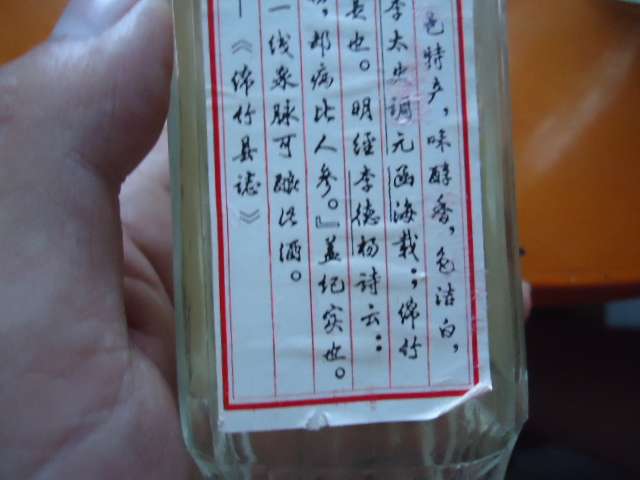 色特产，味醇香，色洁白，
李太史调元函海载：；绵竹
也。明经李德杨诗云：
，却病比人参。』盖纪实也。
一线泉脉可酿此酒。
—《绵竹县志》